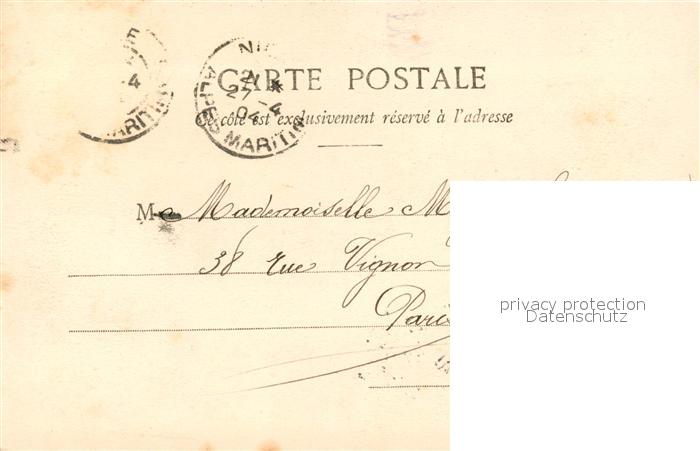 CARTE POSTALE
Ce côté est exclusivement réservé à l'adresse
NI
21
27-4
04
ALPES MARITI
E
4
MARITIM
M Mademoiselle M
38 rue Vignon
Paris
privacy protection
Datenschutz